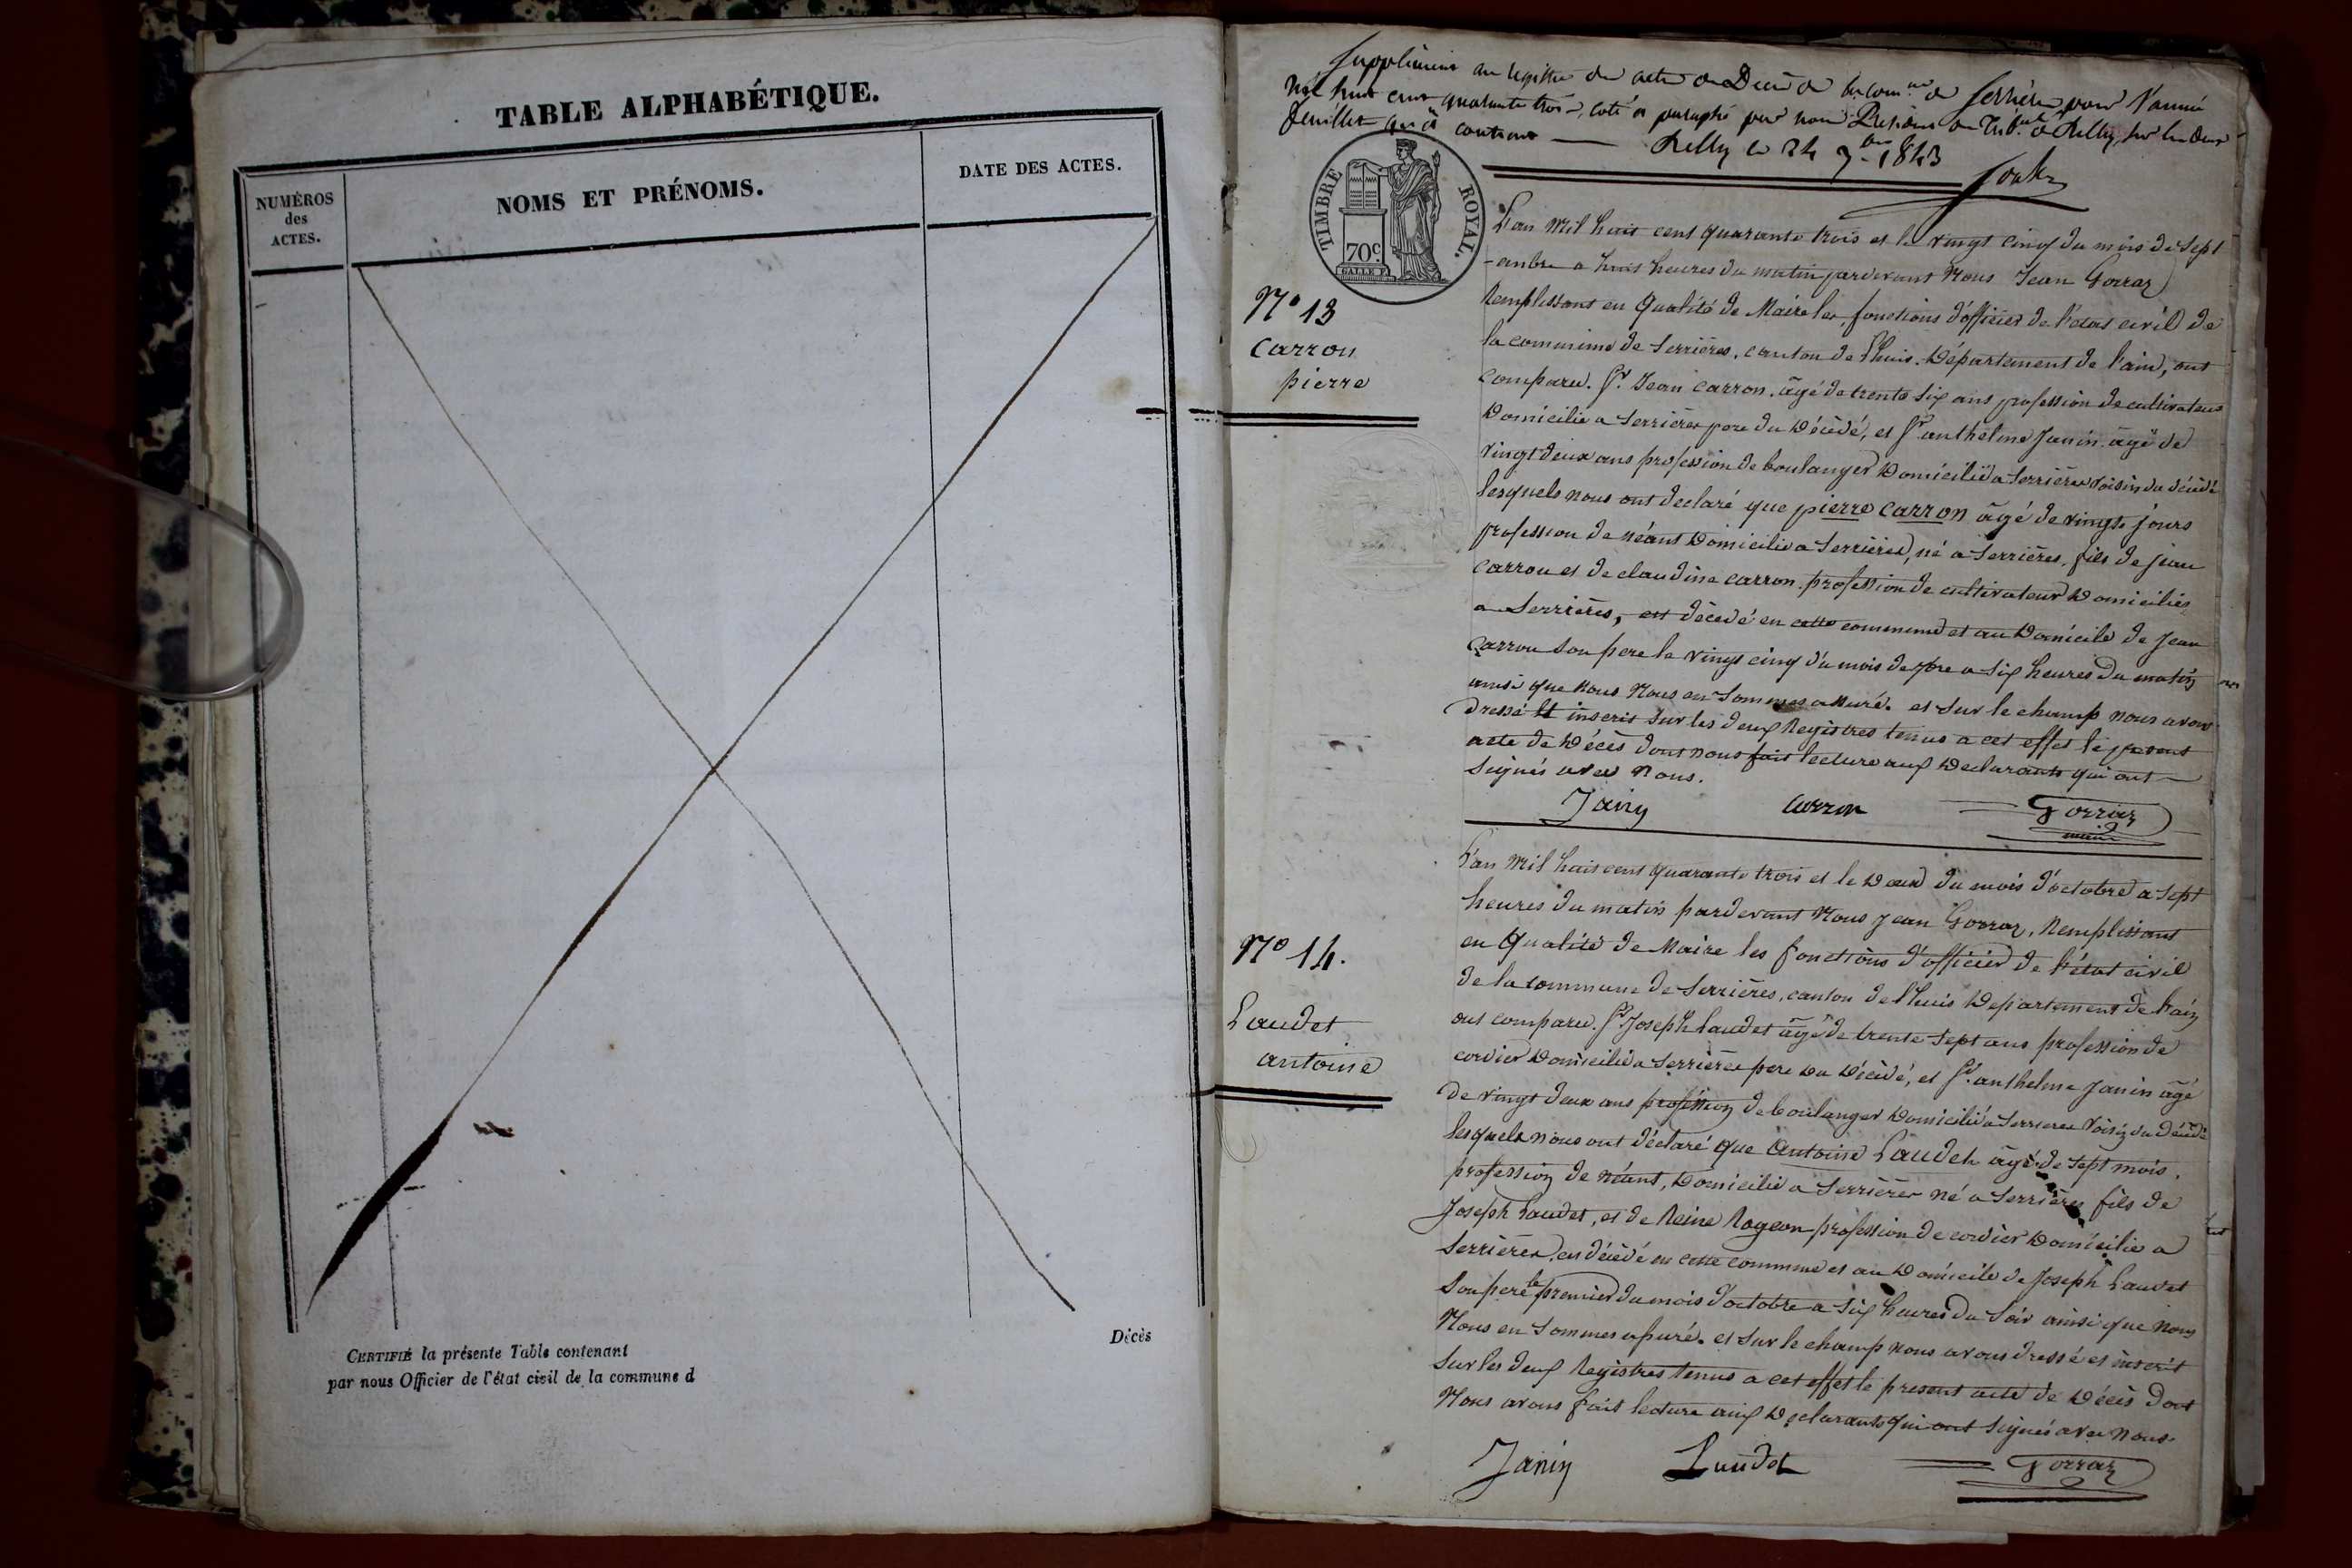 TABLE ALPHABÉTIQUE.
NUMÉROS
des
ACTES.
NOMS ET PRÉNOMS.
DATE DES ACTES.
CERTIFIÉ la présente Table contenant
par nous Officier de l'état civil de la commune d
Décès
Supplément au registre des actes de Décès de la com.ne de Serrières pour l'année
mil huit cent quarante trois, coté et paraphé par nous Président du Trib.al de Belley, sur les deux
feuillets qu'il contient
Belley le 24 7bre 1843
TIMBRE ROYAL.
70c
N° 13
Carron
pierre
L'an mil huit cent quarante trois et le vingt cinq du mois de Sept
-embre a huit heures du matin pardevant Nous Jean Gorraz
Remplissant en Qualité de Maire les fonctions d'officier de l'état civil de
la commune de Serrières, canton de l'huis, Département de l'ain, ont
comparu. Sr. Jean Carron, âgé de trente six ans profession de cultivateur
Domicilié a Serrières pere du Décédé, et Sr anthelme Janin âgé de
vingt deux ans profession de boulanger Domicilié a Serrières voisin du décédé
lesquels nous ont declaré que pierre Carron âgé de vingt jours
profession de néant Domicilié a Serrières, né a Serrières, fils de jean
Carron et de claudine carron profession de cultivateur Domiciliés
a Serrières, est décédé en cette commune et au Domicile de Jean
Carron son pere le vingt cinq du mois de 7bre a six heures du matin
ainsi que nous Nous en sommes assuré. et sur le champ nous avons
dressé et inscrit sur les deux Registres tenus a cet effet le present
acte de Décès dont nous fait lecture aux Declarants qui ont
signés avec Nous.
Janin Carron Gorraz
maire
N° 14.
Laudet
antoine
L'an mil huit cent quarante trois et le Deux du mois d'octobre a sept
heures du matin pardevant Nous Jean Gorraz, Remplissant
en Qualité de Maire les fonctions d'officier de l'état civil
de la commune de Serrières, canton de l'huis Departement de l'ain
ont comparu. Sr Joseph Laudet âgé de trente sept ans profession de
cordier Domicilié a Serrières pere du Décédé, et Sr. anthelme Janin âgé
de vingt deux ans profession de boulanger Domicilié a Serrieres Voisin du décédé
lesquels nous ont déclaré que Antoine Laudet âgé de sept mois,
profession de néant, Domicilié a Serrières né a Serrières fils de
Joseph Laudet, et de Reine Rogeon profession de cordier Domicilié a
Serrières, est décédé en cette commune et au Domicile de Joseph Laudet
son pere le premier du mois d'octobre a six heures du Soir ainsi que nous
Nous en sommes assuré. et sur le champ nous avons dressé et inscrit
sur les deux Registres tenus a cet effet le present acte de Décès Dont
Nous avons fait lecture aux Declarants qui ont signés avec Nous.
Janin Laudet Gorraz